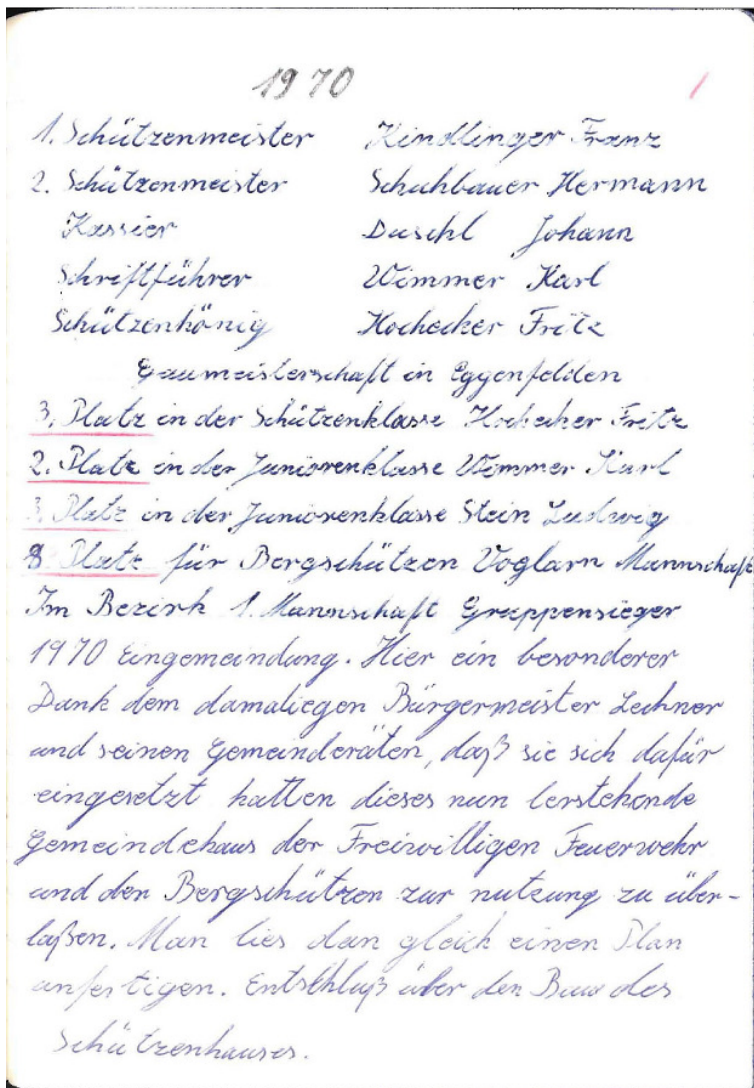 1970
1. Schützenmeister Kindlinger Franz
2. Schützenmeister Schuhbauer Hermann
Kassier Duschl Johann
Schriftführer Wimmer Karl
Schützenkönig Hochecker Fritz
Gaumeisterschaft in Eggenfelden
3. Platz in der Schützenklasse Hochecker Fritz
2. Platz in der Juniorenklasse Wimmer Karl
3. Platz in der Juniorenklasse Stein Ludwig
8. Platz für Bergschützen Voglarn Mannschaft
Im Bezirk 1. Mannschaft Gruppensieger
1970 Eingemeindung. Hier ein besonderer
Dank dem damaliegen Bürgermeister Lechner
und seinen Gemeinderäten, daß sie sich dafür
eingesetzt hatten dieses nun leerstehende
Gemeindehaus der Freiwilligen Feuerwehr
und den Bergschützen zur nutzung zu über-
laßen. Man lies dan gleich einen Plan
anfertigen. Entschluß über den Bau des
Schützenhauses.